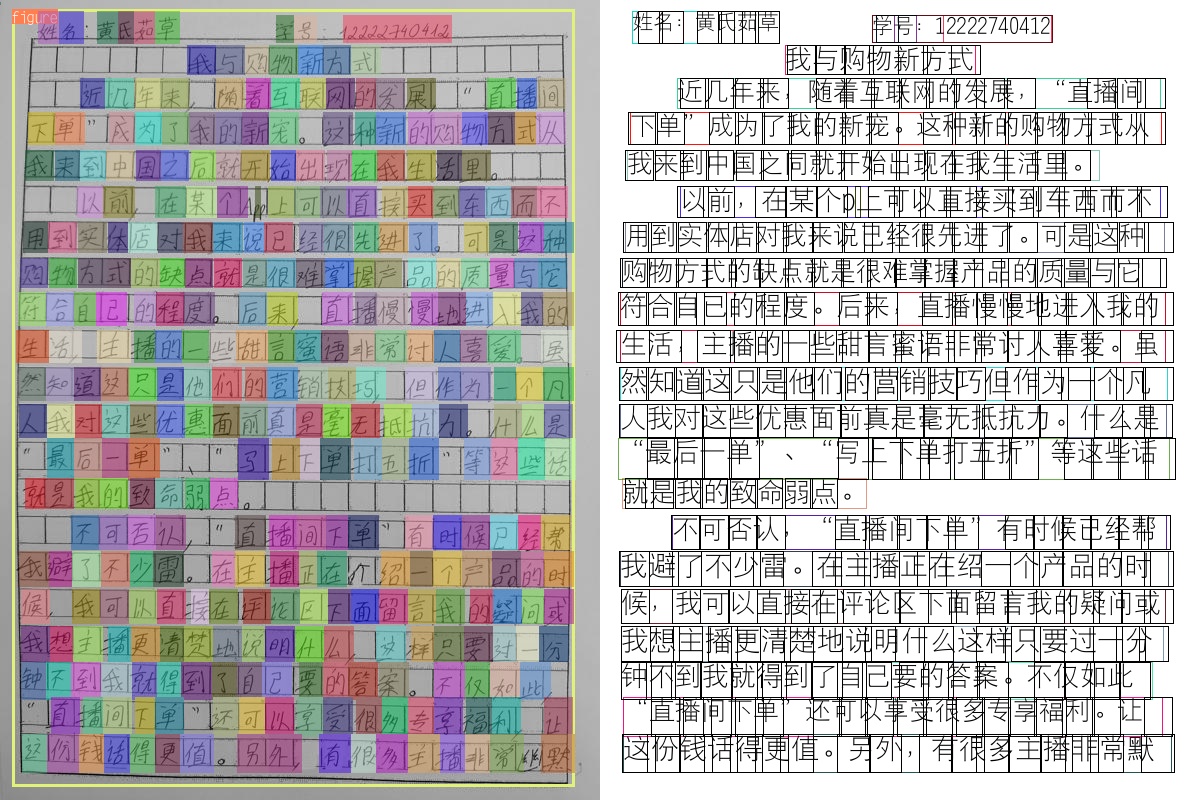 figure
姓名：黄氏茹草 学号：12222740412
我与购物新方式
近几年来，随着互联网的发展，“直播间
下单”成为了我的新宠。这种新的购物方式从
我来到中国之后就开始出现在我生活里。
以前，在某个App上可以直接买到东西而不
用到实体店对我来说已经很先进了。可是这种
购物方式的缺点就是很难掌握产品的质量与它
符合自己的程度。后来，直播慢慢地进入我的
生活，主播的一些甜言蜜语非常讨人喜爱。虽
然知道这只是他们的营销技巧，但作为一个凡
人我对这些优惠面前真是毫无抵抗力。什么是
“最后一单”、“马上下单打五折”等这些话
就是我的致命弱点。
不可否认，“直播间下单”有时候已经帮
我避了不少雷。在主播正在介绍一个产品的时
候，我可以直接在评论区下面留言我的疑问或
我想主播更清楚地说明什么，这样只要过一分
钟不到我就得到了自己要的答案。不仅如此，
“直播间下单”还可以享受很多专享福利，让
这份钱话得更值。另外，有很多主播非常幽默
姓名：黄氏茹草 学号：12222740412
我与购物新方式
近几年来，随着互联网的发展，“直播间
下单”成为了我的新宠。这种新的购物方式从
我来到中国之同就开始出现在我生活里。
以前，在某个p上可以直接买到车西而不
用到实体店对我来说已经很先进了。可是这种
购物方式的缺点就是很难掌握产品的质量与它
符合自已的程度。后来，直播慢慢地进入我的
生活，主播的一些甜言蜜语非常讨人喜爱。虽
然知道这只是他们的营销技巧但作为一个凡
人我对这些优惠面前真是毫无抵抗力。什么是
“最后一单”、“写上下单打五折”等这些话
就是我的致命弱点。
不可否认，“直播间下单”有时候已经帮
我避了不少雷。在主播正在绍一个产品的时
候，我可以直接在评论区下面留言我的疑问或
我想主播更清楚地说明什么这样只要过一分
钟不到我就得到了自己要的答案。不仅如此
“直播间下单”还可以享受很多专享福利。让
这份钱话得更值。另外，有很多主播非常默